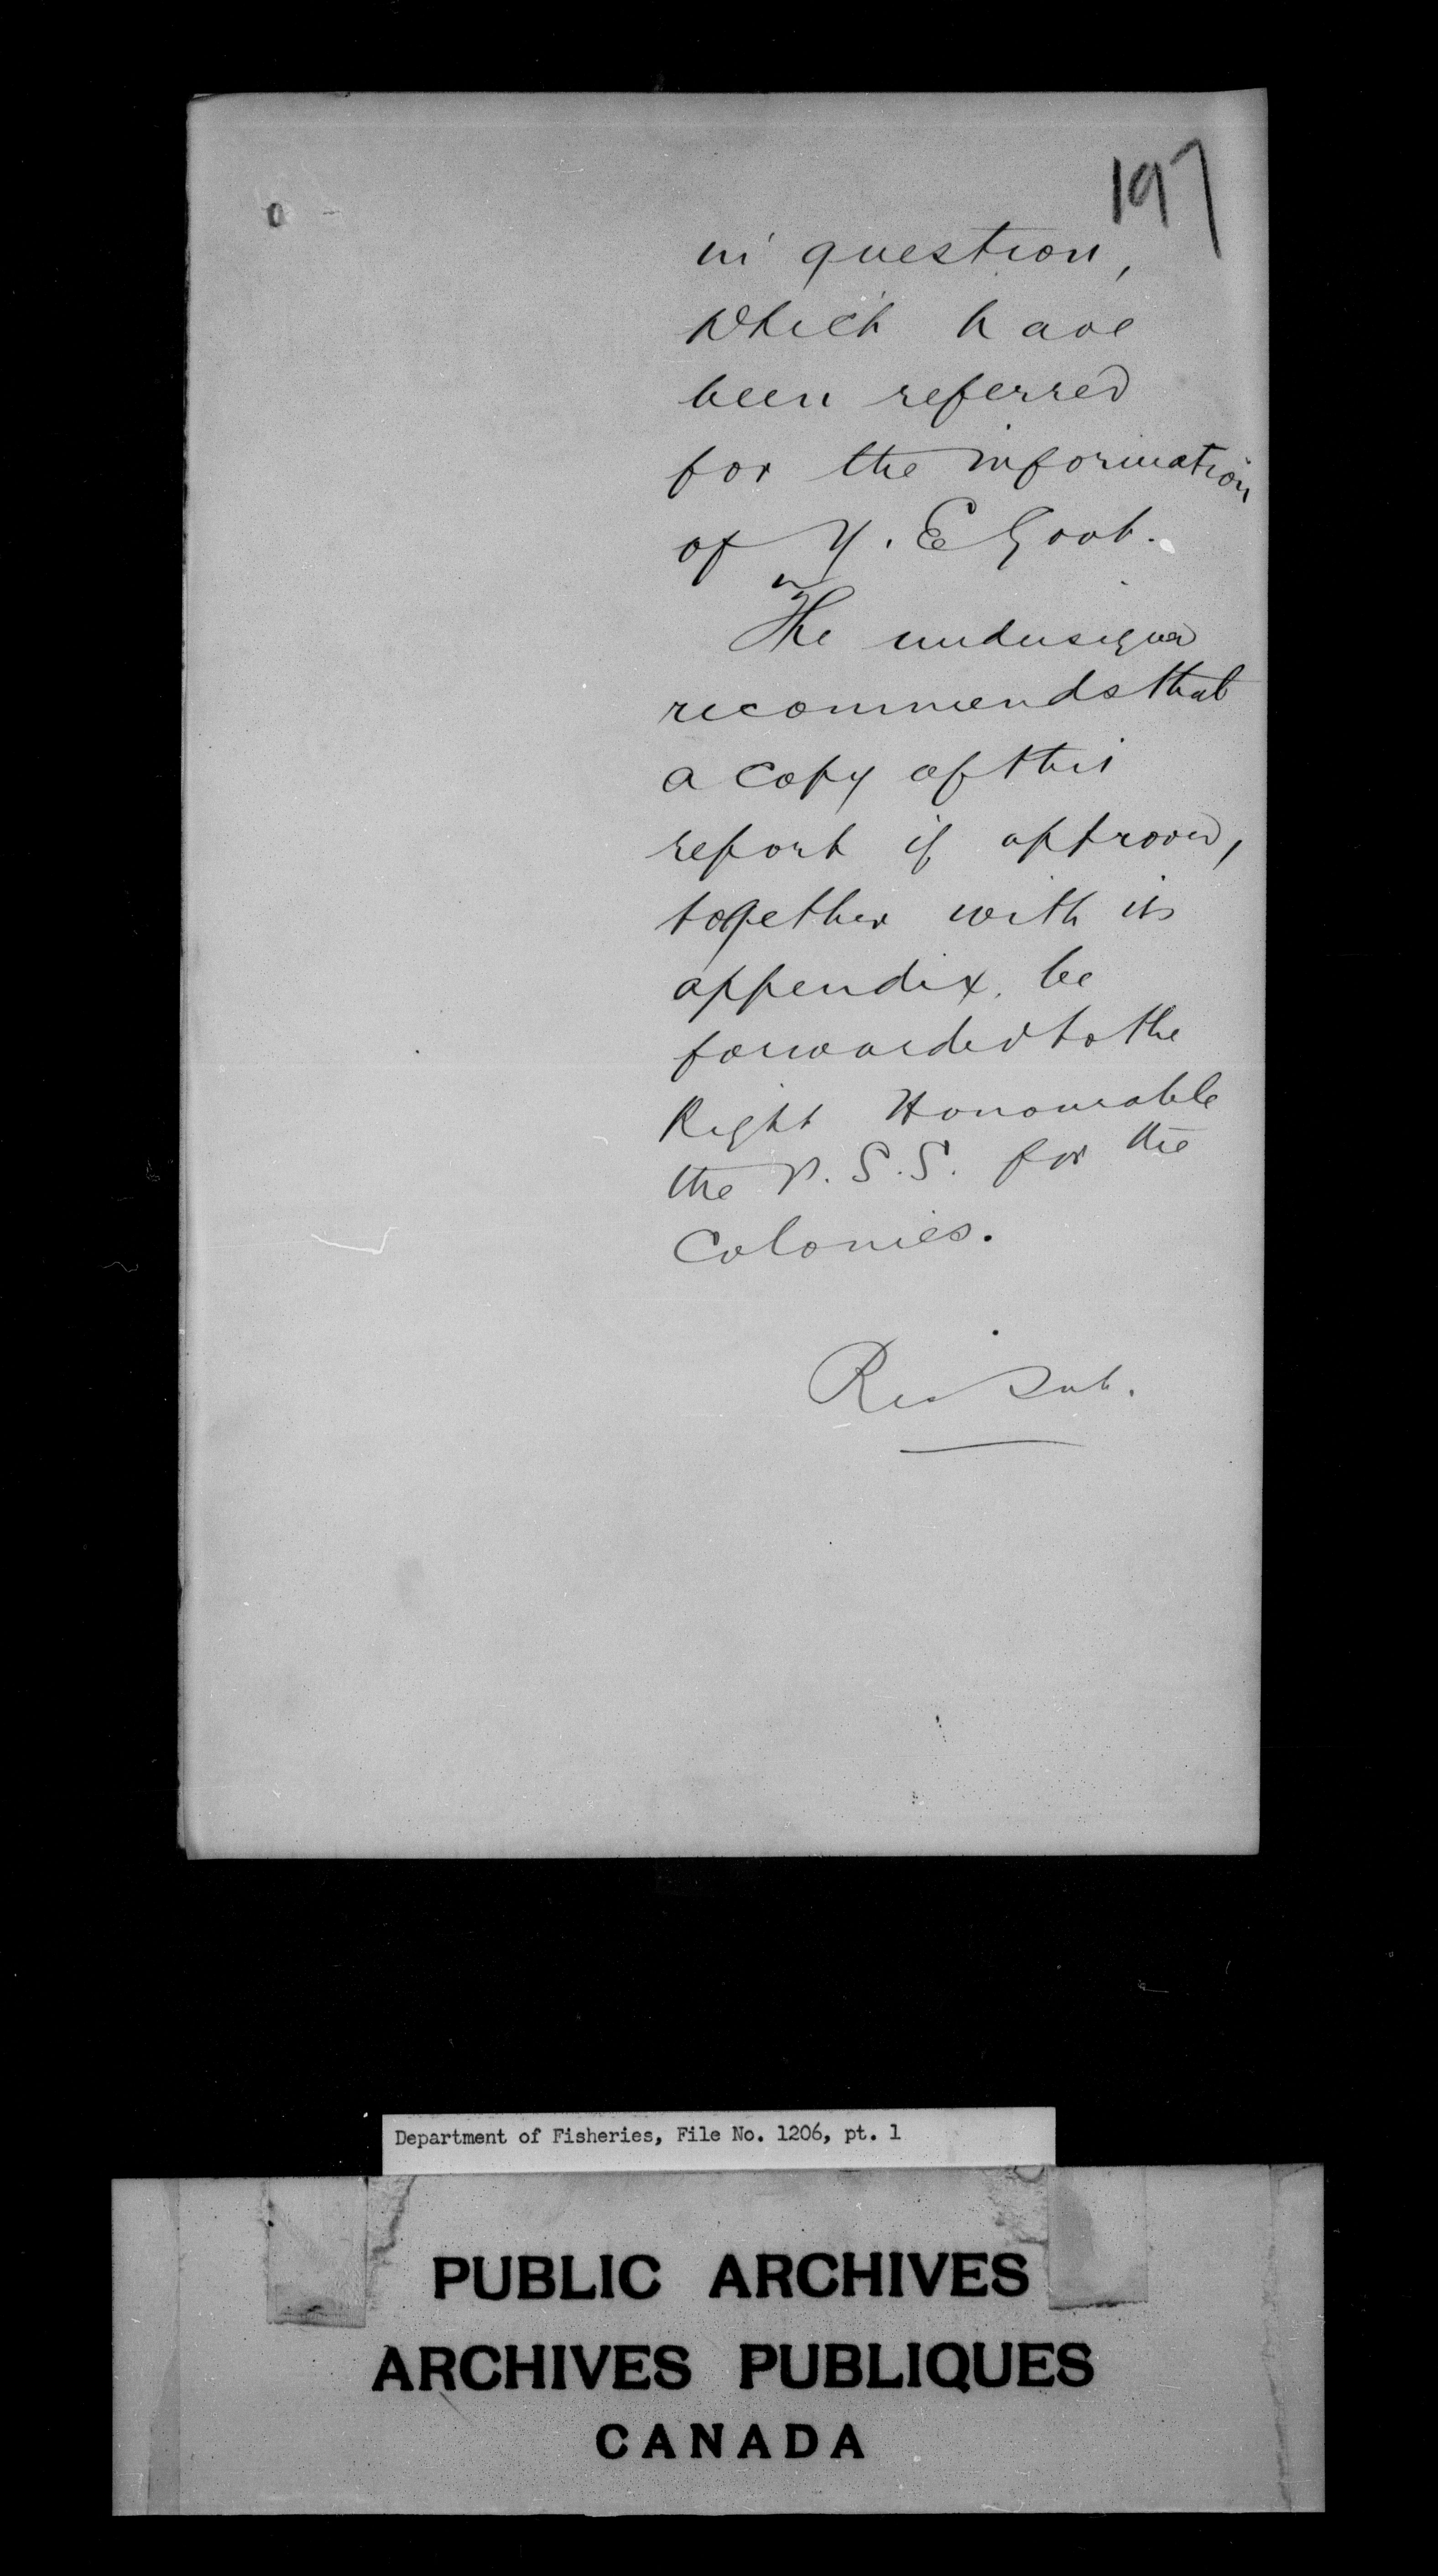 197
in question,
which have
been referred
for the information
of Y. E Govt.
The undersigned
recommends that
a copy of this
report if approved,
together with its
appendix, be
forwarded to the
Right Honourable
the P. S. S. for the
Colonies.
Res Sub.
Department of Fisheries, File No. 1206, pt. 1
PUBLIC ARCHIVES
ARCHIVES PUBLIQUES
CANADA